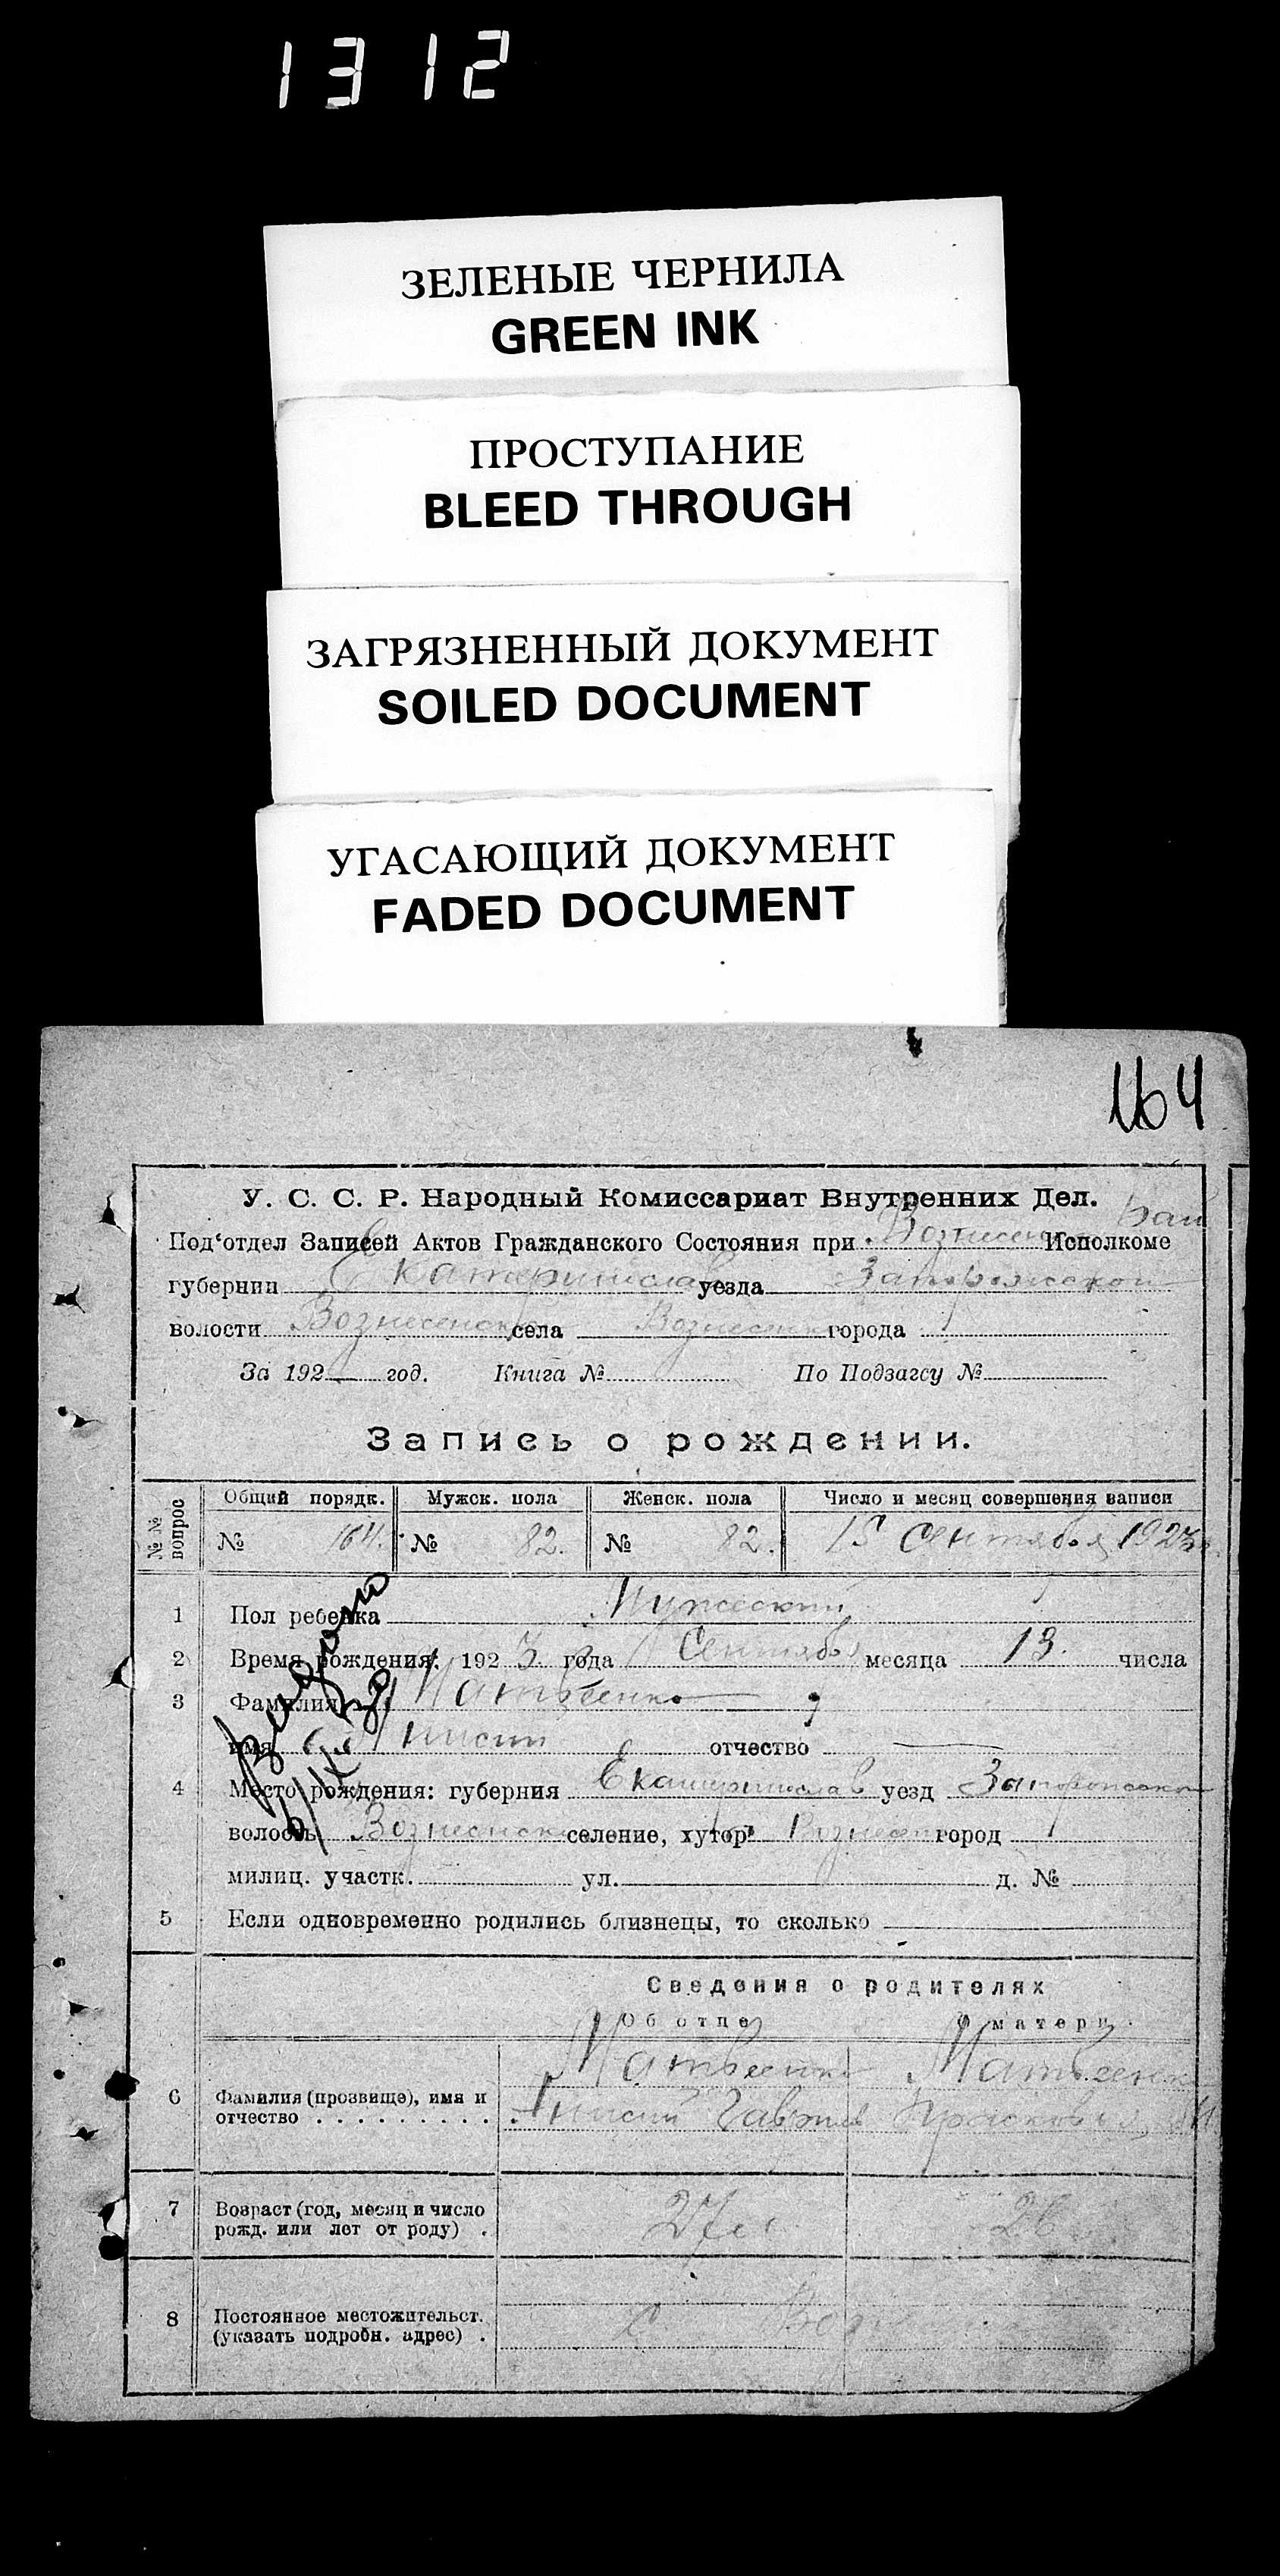 1312
ЗЕЛЕНЫЕ ЧЕРНИЛА
GREEN INK
ПРОСТУПАНИЕ
BLEED THROUGH
ЗАГРЯЗНЕННЫЙ ДОКУМЕНТ
SOILED DOCUMENT
УГАСАЮЩИЙ ДОКУМЕНТ
FADED DOCUMENT
164
У. С. С. Р. Народный Комиссариат Внутренних Дел.
Под‘отдел Записей Актов Гражданского Состояния при Исполкоме
губернии Екатеринослав уезда Запорожского
волости Вознесенской села Вознесенка города
За 192 год. Книга № По Подзагсу №
Запись о рождении.
№№ вопрос Общий порядк. Мужск. пола Женск. пола Число и месяц совершения записи
№ 164. № 82. № 82. 15 Сентября 1923
1 Пол ребенка Мужеский
2 Время рождения: 1923 года Сентября месяца 13. числа
3 Фамилия Матвеенко
имя отчество
4 Место рождения: губерния Екатеринослав уезд Запорожского
волость Вознесенск селение, хутор Вознесен город
милиц. участк. ул. д. №
5 Если одновременно родились близнецы, то сколько
Сведения о родителях
Об отце О матери
Матвеенко Матвеенко
6 Фамилия (прозвище), имя и
отчество Анисий Гаврилов Прасковия
7 Возраст (год, месяц и число
рожд. или лет от роду) 27
8 Постоянное местожительст.
(указать подробн. адрес)